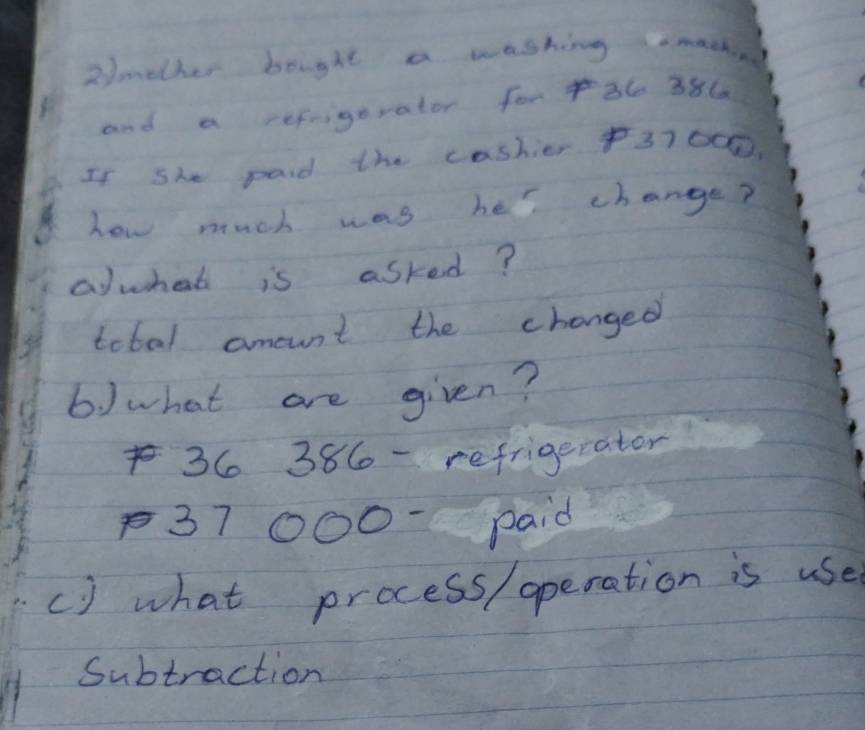 2) mother bought a washing machine
and a refrigerator for ₱36 386
If she paid the cashier ₱37 000,
how much was her change?
a) what is asked?
total amount the changed
b.) what are given?
₱ 36 386 - refrigerator
₱ 37 000 - paid
c.) what process/operation is used
Subtraction